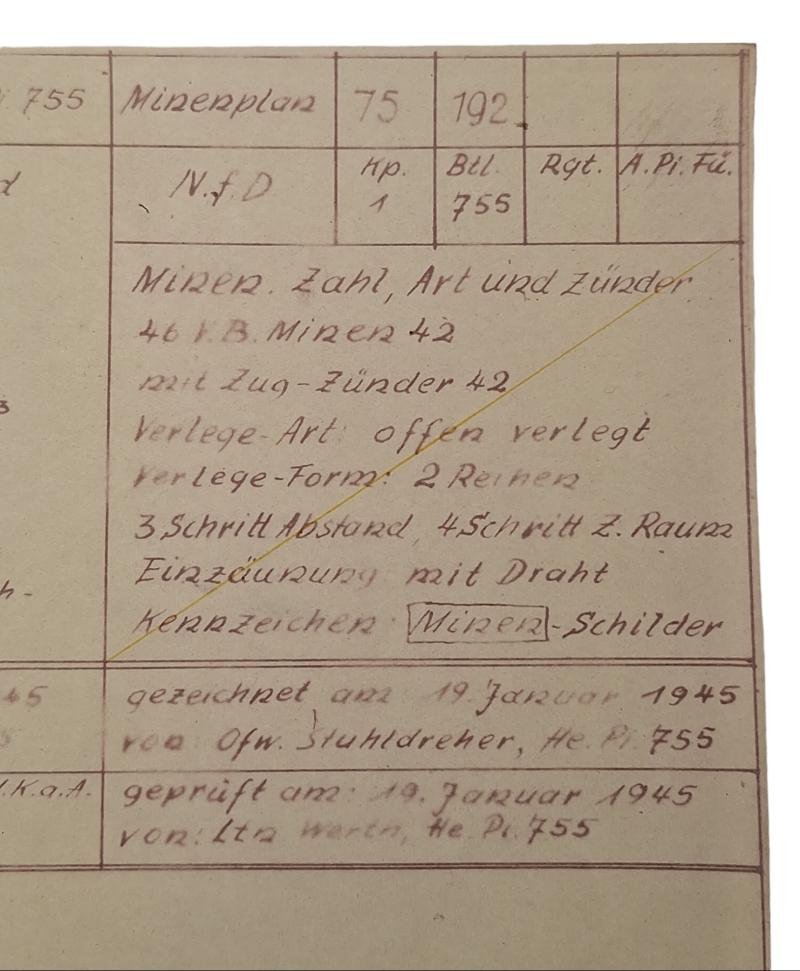 i. 755 Minenplan 75 192
d N.f.D Kp. Btl. Rgt. A.Pi.Fü.
1 755
Minen. Zahl, Art und Zünder
46 V.B. Minen 42
mit Zug-Zünder 42
3
Verlege-Art: offen verlegt
Verlege-Form: 2 Reihen
3 Schritt Abstand, 4 Schritt Z. Raum
Einzäunung mit Draht
h-
Kennzeichen: Minen-Schilder
45 gezeichnet am 19. Januar 1945
5 von Ofw. Stuhldreher, He. Pi. 755
.K.a.A. geprüft am: 19. Januar 1945
von: Ltn Werth, He. Pi. 755